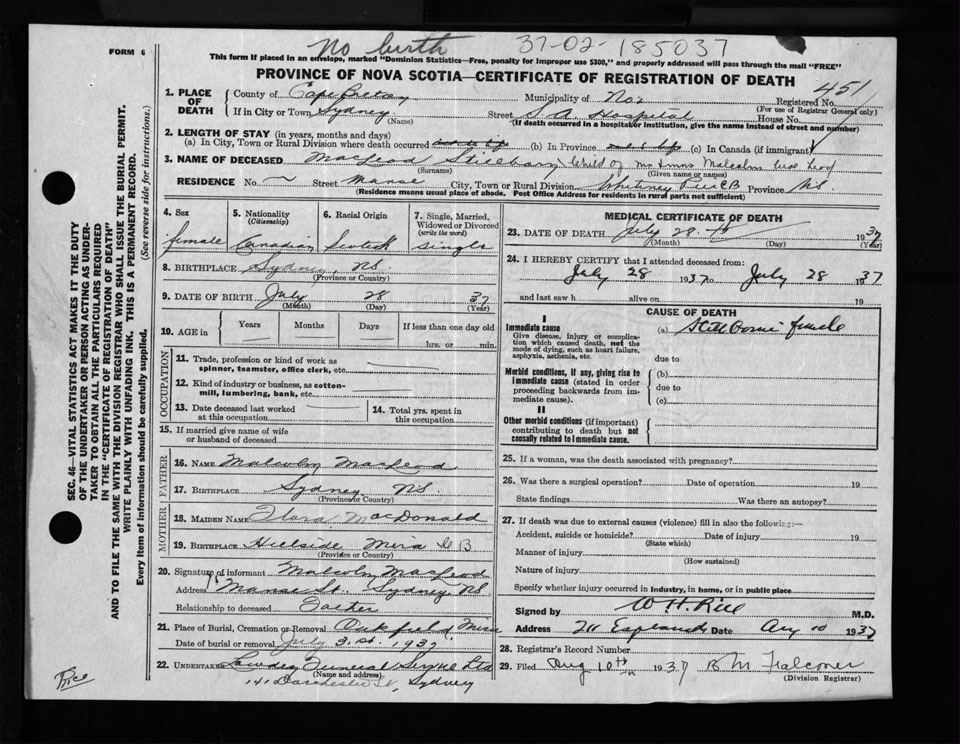 No birth 37-02-185037
FORM 6
This form if placed in an envelope, marked "Dominion Statistics—Free, penalty for improper use $300," and properly addressed will pass through the mail "FREE"
PROVINCE OF NOVA SCOTIA—CERTIFICATE OF REGISTRATION OF DEATH
451
1. PLACE OF DEATH County of Cape Breton Municipality of No 2 Registered No.
(For use of Registrar General only)
If in City or Town Sydney (Name) Street Hospital House No.
(If death occurred in a hospital or institution, give the name instead of street and number)
2. LENGTH OF STAY (in years, months and days)
(a) In City, Town or Rural Division where death occurred (b) In Province (c) In Canada (if immigrant)
3. NAME OF DECEASED MacLeod Stillborn Child of Malcolm
(Surname) (Given name or names)
RESIDENCE No. — Street Manse City, Town or Rural Division Whitney Pier CB Province NS.
(Residence means usual place of abode. Post Office Address for residents in rural parts not sufficient)
4. Sex female
5. Nationality (Citizenship) Canadian
6. Racial Origin Scotch
7. Single, Married, Widowed or Divorced (write the word) single
8. BIRTHPLACE Sydney, NS
(Province or Country)
9. DATE OF BIRTH July 28 37
(Month) (Day) (Year)
10. AGE in Years Months Days If less than one day old
hrs. or min.
OCCUPATION
11. Trade, profession or kind of work as spinner, teamster, office clerk, etc.
12. Kind of industry or business, as cotton-mill, lumbering, bank, etc.
13. Date deceased last worked at this occupation
14. Total yrs. spent in this occupation
15. If married give name of wife or husband of deceased
FATHER
16. NAME Malcolm MacLeod
17. BIRTHPLACE Sydney NS.
(Province or Country)
MOTHER
18. MAIDEN NAME Flora MacDonald
19. BIRTHPLACE Hillside Mira CB
(Province or Country)
20. Signature of informant Malcolm MacLeod
Address Manse St. Sydney NS
Relationship to deceased Father
21. Place of Burial, Cremation or Removal Oakfield Mira
Date of burial or removal July 31st. 1937
22. UNDERTAKER Funeral Service Ltd
(Name and address)
141 Dorchester St, Sydney
MEDICAL CERTIFICATE OF DEATH
23. DATE OF DEATH July 28 1937
(Month) (Day) (Year)
24. I HEREBY CERTIFY that I attended deceased from:
July 28 1937 to July 28 1937
and last saw h alive on 19
CAUSE OF DEATH
I
Immediate cause
Give disease, injury or complication which caused death, not the mode of dying, such as heart failure, asphyxia, asthenia, etc.
(a) Still Born female
due to
Morbid conditions, if any, giving rise to immediate cause (stated in order proceeding backwards from immediate cause).
(b)
due to
(c)
II
Other morbid conditions (if important) contributing to death but not causally related to immediate cause.
25. If a woman, was the death associated with pregnancy?
26. Was there a surgical operation? Date of operation 19
State findings Was there an autopsy?
27. If death was due to external causes (violence) fill in also the following:—
Accident, suicide or homicide? Date of injury 19
(State which)
Manner of injury
(How sustained)
Nature of injury
Specify whether injury occurred in industry, in home, or in public place
Signed by W H Rice M.D.
Address 711 Esplanade Date Aug 10 1937
28. Registrar's Record Number
29. Filed Aug 10th 1937 B M Falconer
(Division Registrar)
SEC. 46—VITAL STATISTICS ACT MAKES IT THE DUTY
OF THE UNDERTAKER OR PERSON ACTING AS UNDER-
TAKER TO OBTAIN ALL THE PARTICULARS REQUIRED
IN THE "CERTIFICATE OF REGISTRATION OF DEATH"
AND TO FILE THE SAME WITH THE DIVISION REGISTRAR WHO SHALL ISSUE THE BURIAL PERMIT.
WRITE PLAINLY WITH UNFADING INK. THIS IS A PERMANENT RECORD.
Every item of information should be carefully supplied. (See reverse side for instructions.)
Rice